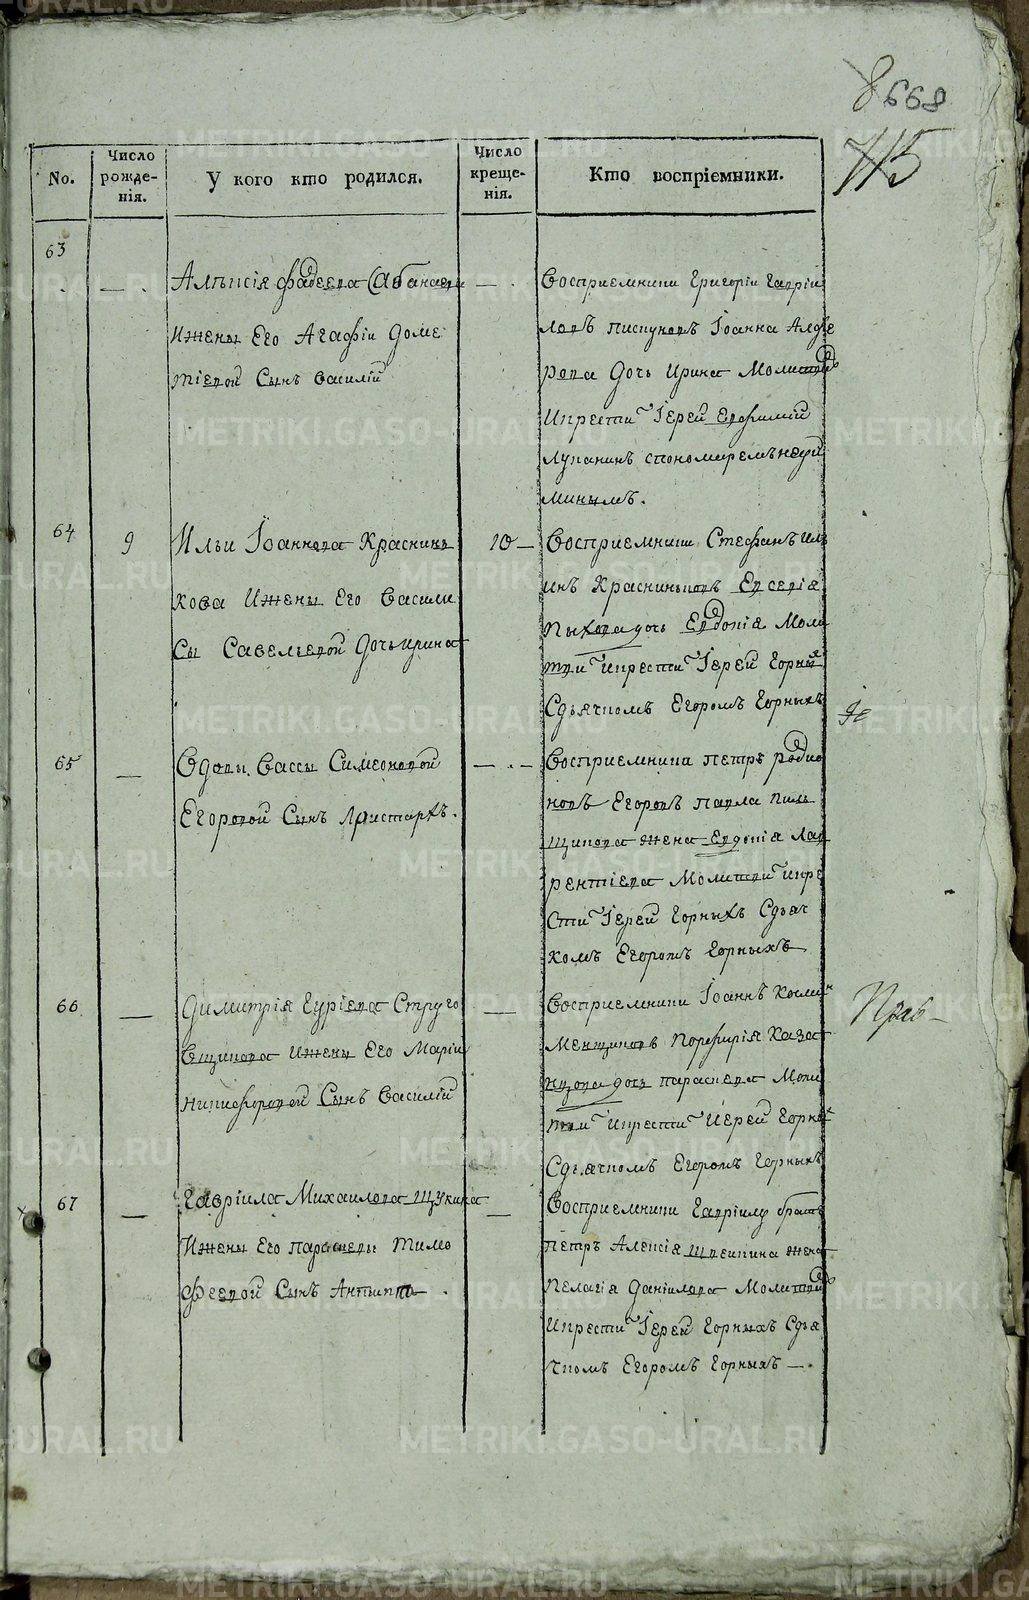 8668
715
No.
Число рожде-нія.
У кого кто родился.
Число креще-нія.
Кто воспріемники.
63
Алексія Фадеева Сабанаева
ижены Его Агафіи Доме
тіевой Сынъ Василій
Восприемники Григоріи Гаврии
ловъ Пискуновъ Іоанна Алфе
рова Дочь Ирина Молитвов
Икрести Іерей
Лупанинъ спономаремъ
минымъ.
64
9
Ильи Іоаннова Красник
кова Ижены Его Васили
сы Савельевой Дочь Ирина
10
Восприемники Стефанъ Иль
инъ Красниковъ Евсевія
Пыхова дочь Евдокія Моли
тви Икрести Іерей Горный
Сдьячкомъ Егоромъ Горныхъ
65
Вдовы Вассы Симеоновой
Егоровой Сынъ Аристархъ.
Восприемники Петръ Родио
новъ Егоровъ Павла Пиль
щикова жена Евдокіа Лав
рентіева Молитвой Икре
сти Іерей Горныхъ Сдьяч
комъ Егоромъ Горныхъ
66
Димитрія Гуріева Струго
вщикова ижены Его Маріи
Никифоровой Сынъ Василій
Восприемники Іоаннъ Косми
Менщиковъ Порфирія Казан
нцова дочь Параскева Моли
твои Икрести Иерей Горны
Сдьячкомъ Егоромъ Горныхъ
Прав
67
Гавріила Михаилова Щукина
Ижены Его Параскевы Тимо
феевой Сынъ Антипа
Восприемники Гавріилу братъ
Петръ Алексія жена
Пелагіа Даніилова Молитвой
Икрести Іерей Горныхъ Сдья
чкомъ Егоромъ Горныхъ
METRIKI.GASO-URAL.RU